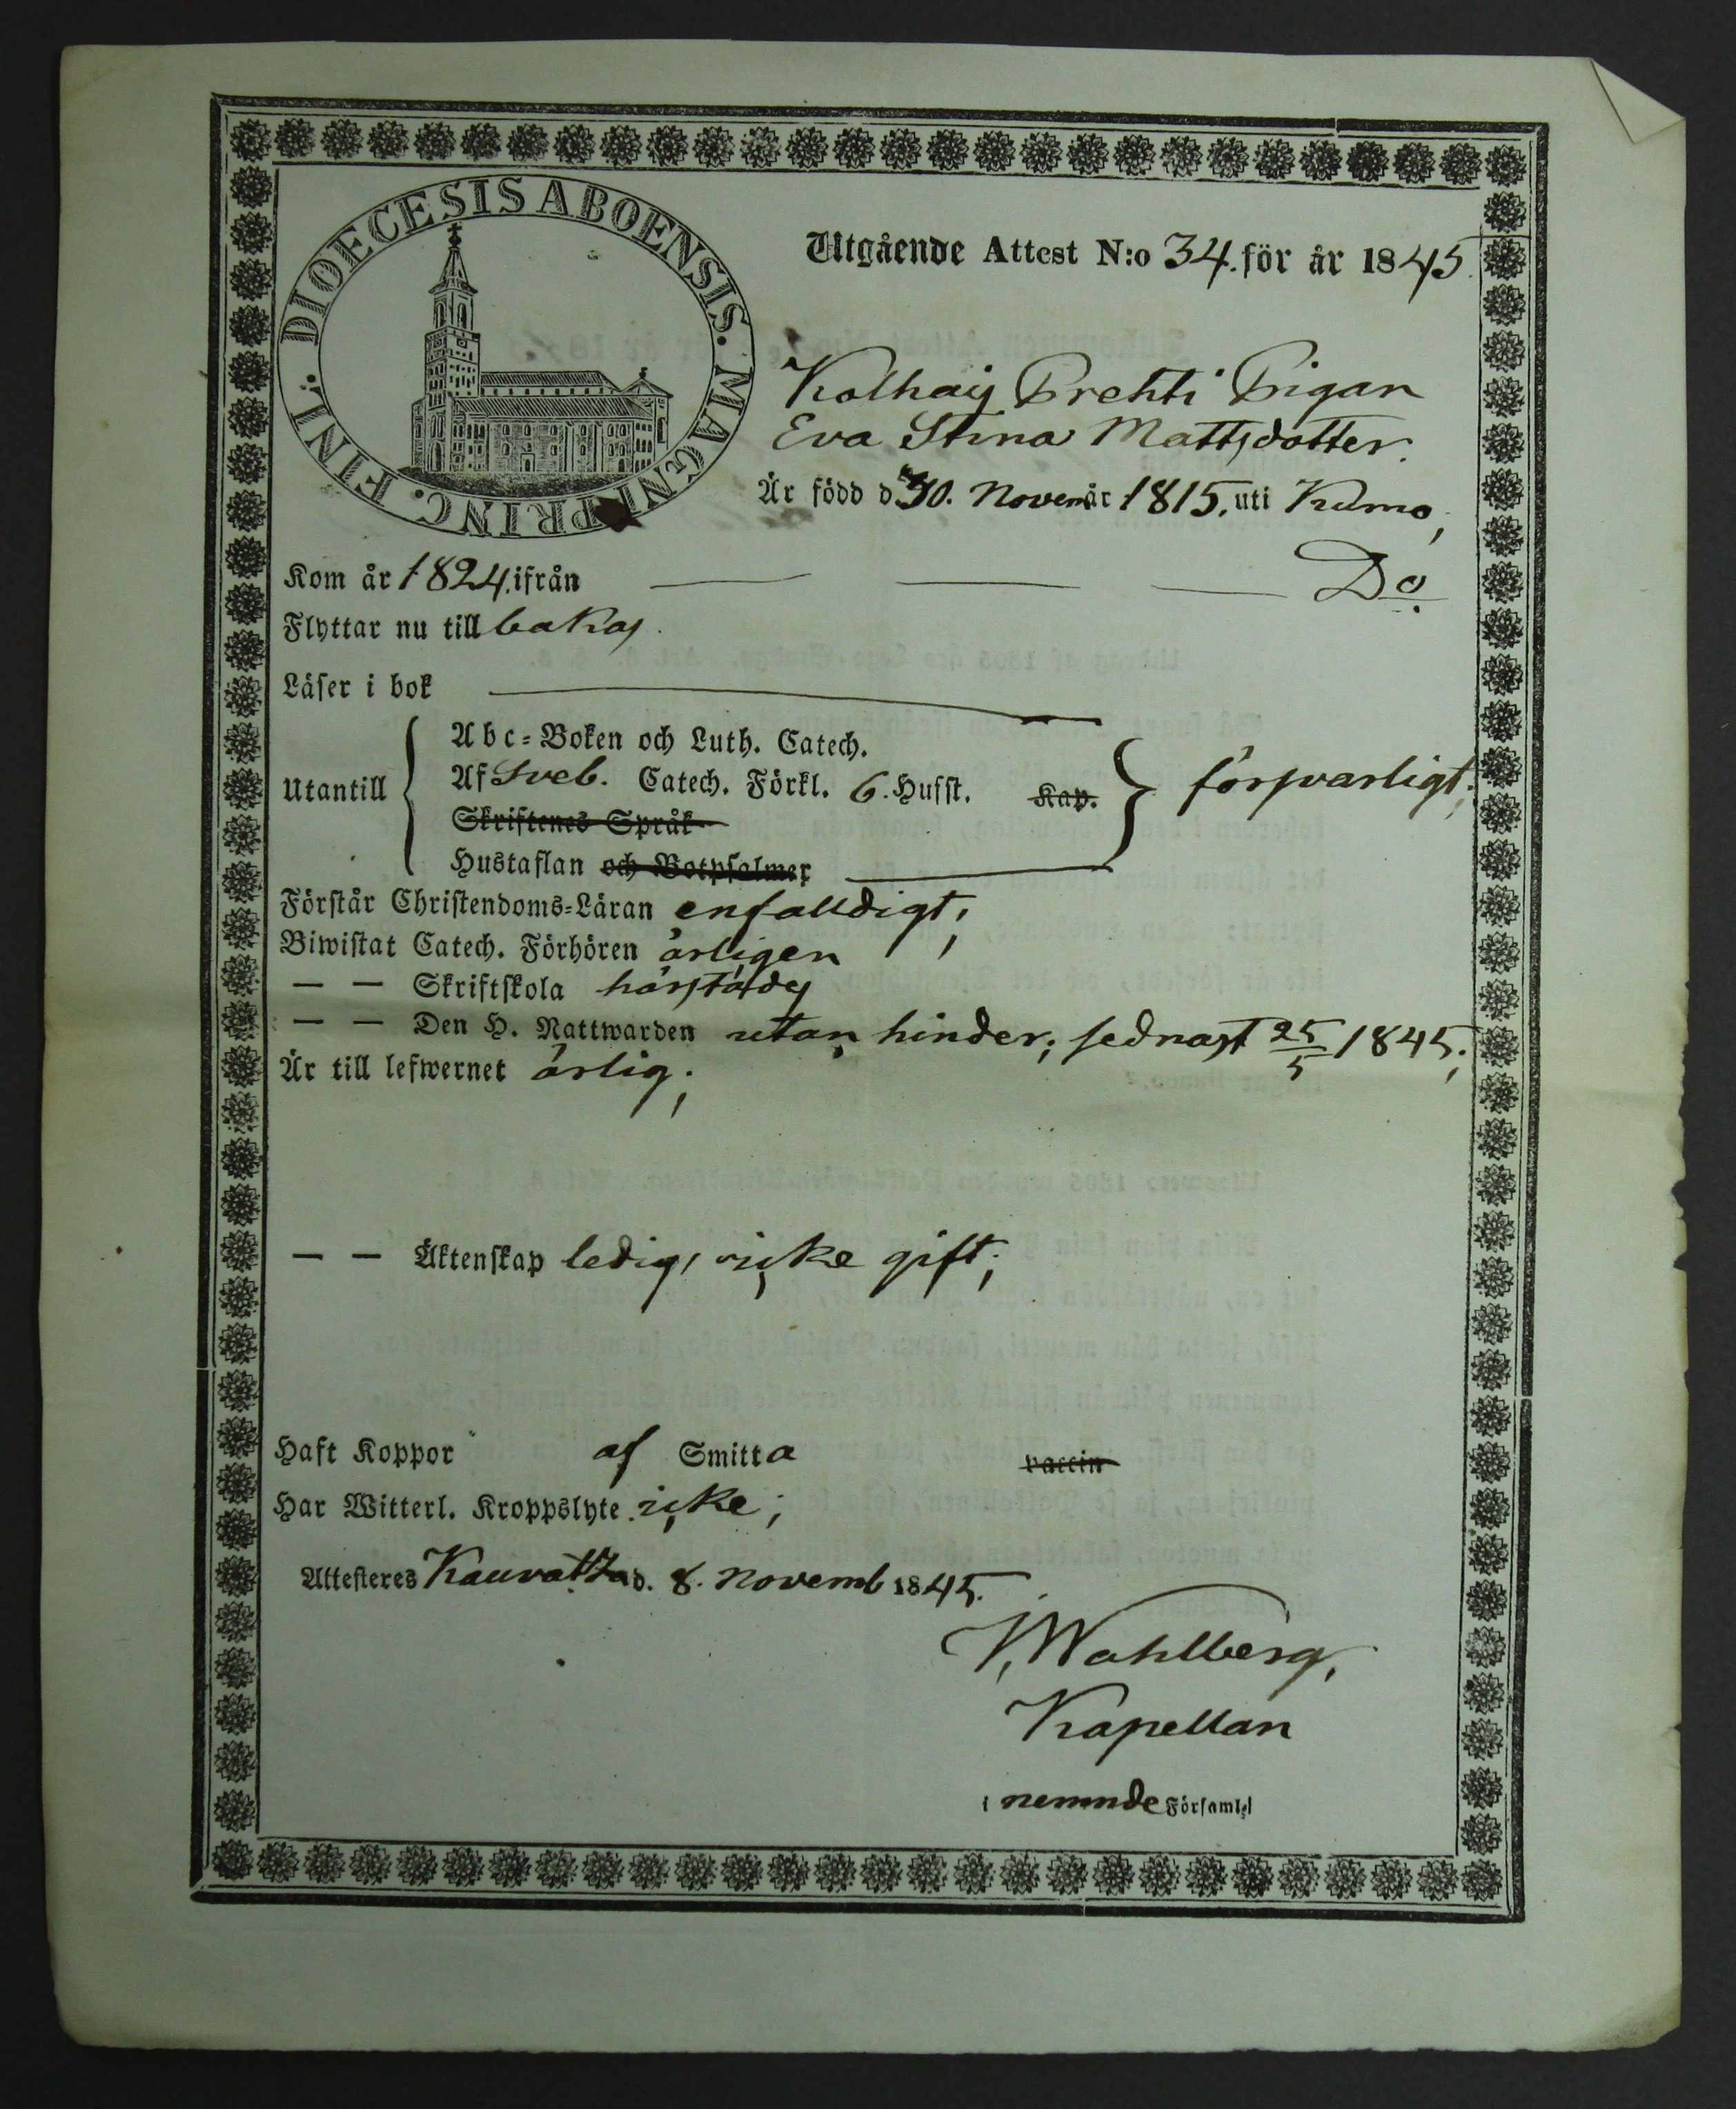 DIOECESIS ABOENSIS. MAGNI PRINC. FINL.
Utgående Attest N:o 34. för år 1845.
Kolhaig Prehti Pigan
Eva Stina Mattsdotter.
Är född d. 30. Novem år 1815. uti Kumo,
Kom år 1824. ifrån — — — Do
Flyttar nu till bakas.
Läser i bok
Abc-Boken och Luth. Catech.
Utantill Af Sveb. Catech. Förkl. 6. Husst. Kap. försvarligt;
Skriftenes Språk
Hustaflan och Botpsalmer
Förstår Christendoms-Läran enfalldigt;
Biwistat Catech. Förhören årligen
— — Skriftskola härstädes
— — Den H. Nattwarden utan hinder; sednast 25/5 1845;
Är till lefwernet ärlig;
— — Äktenskap ledig, icke gift;
Haft Koppor af Smitta vaccin
Har Witterl. Kroppslyte icke;
Attesteres Kauvatza d. 8. Novemb 1845.
Wahlberg,
Kapellan
i nemnde Församl.